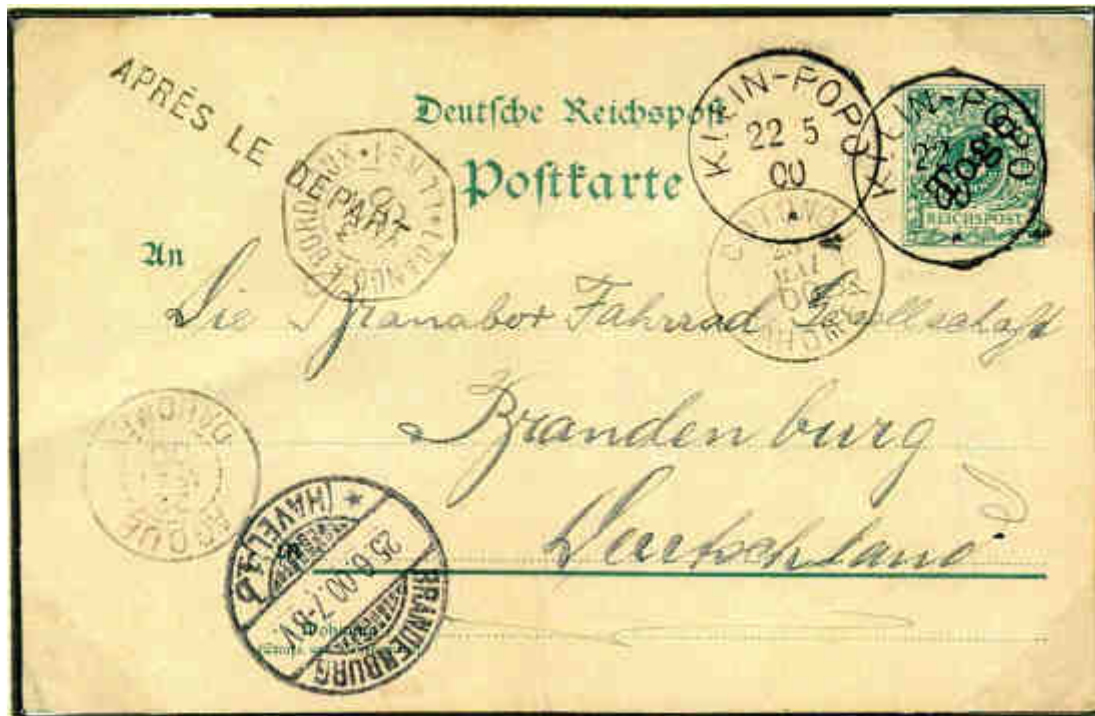 APRÉS LE DÉPART
Deutsche Reichspost
Postkarte
KLEIN-POPO
22 5
00
KLEIN-POPO
22
Togo
REICHSPOST
BORDEAUX
An
Die Branabor Fahrrad Gesellschaft
Brandenburg
Deutschland
DAHOMEY
BRANDENBURG
(HAVEL) 1 b
25.6.00. 7-8V.
Wohnung